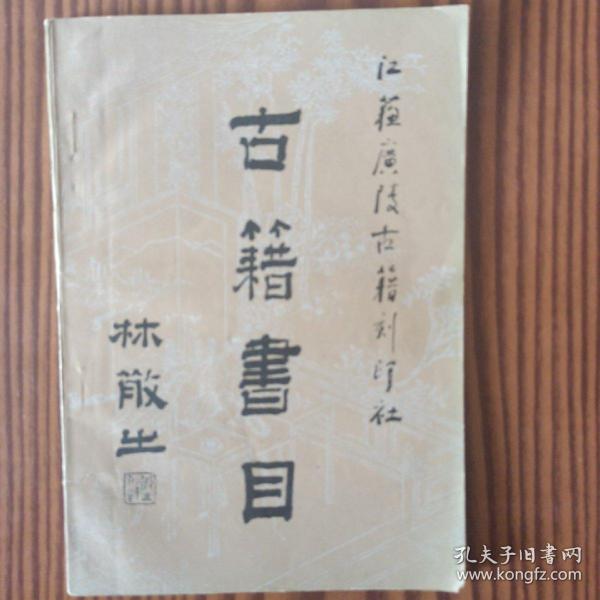 江蘇廣陵古籍刻印社
古籍書目
林散之
孔夫子旧书网
www.kongfz.com